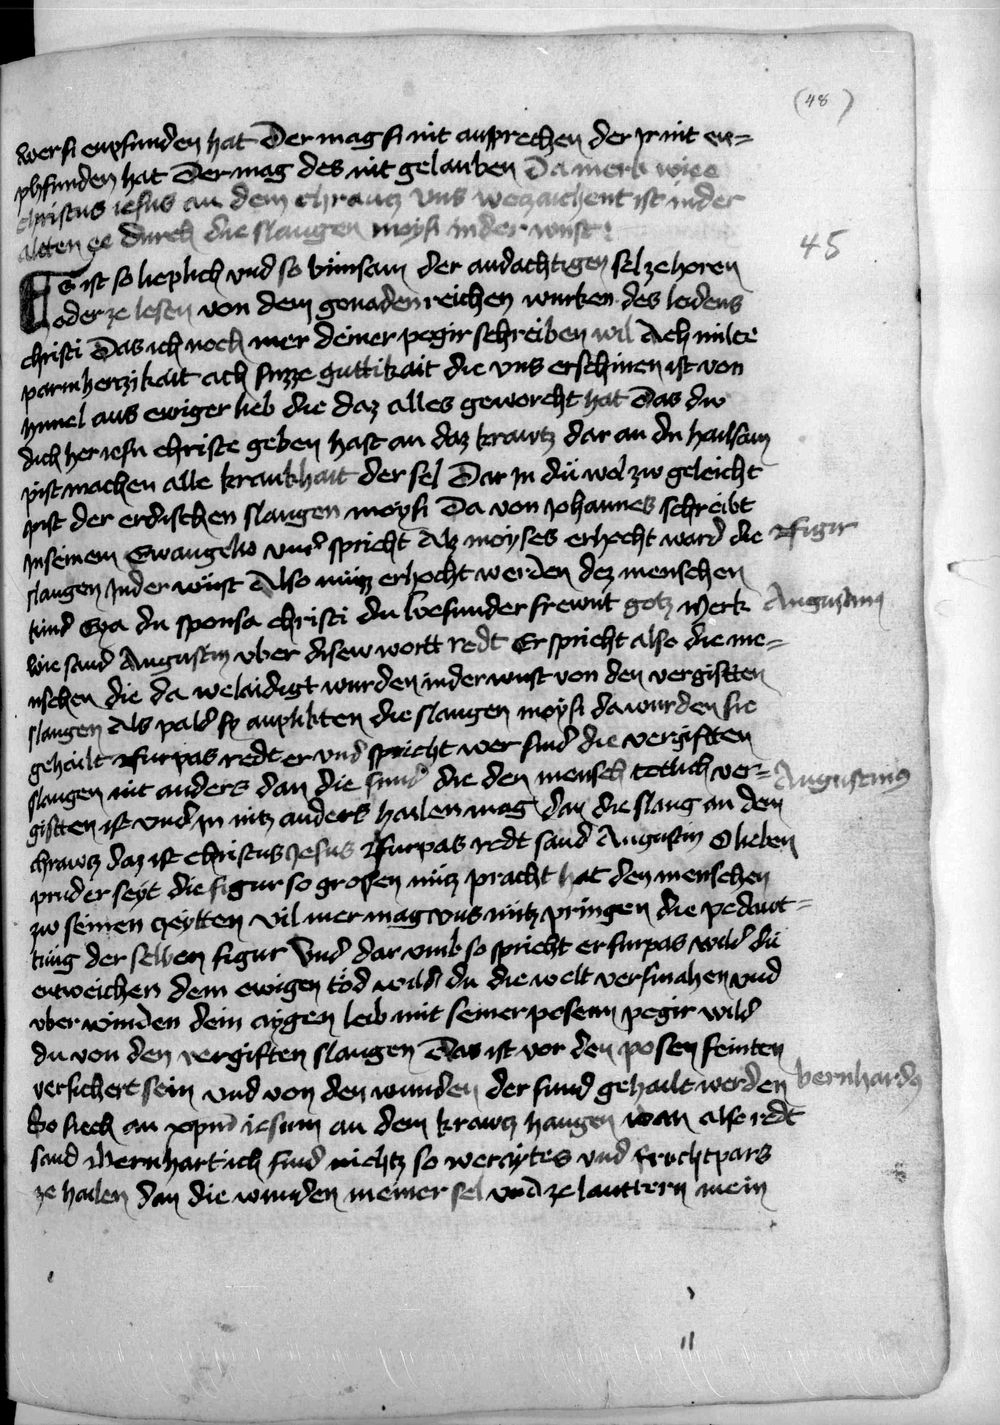 (48)
wer si enpfunden hat Der mag si nit ansprechen der Ir nit en=
phfunden hat Der mag des nit gelauben Da merk wiee
christus iesus an dem chrautz vns wezaichent ist in der
alten ee durch die slangen moysi in der wust
45
Es ist so lieplich vnd so wunsam der andachtigen sel ze horen
oder ze lesen von dem gonadenreichen wurken des leidens
christi Das ich noch mer deiner pegir schreiben wil Ach milte
parmhertzikait ach suzze guttikait die vns erschinen ist von
hymel aus ewiger lieb die daz alles geworcht hat Das dw
dich her iesu christe geben hast an daz krawtz dar an du hailsam
pist machen alle krankhait der sel Dar In dü wol zw geleicht
pist der erdischen slangen moysi Da von Johannes schreibt
In seinem Ewangelio vnd spricht Als moyses erhocht ward die
Figir
slangen In der wüst Also müz erhocht werden dez menschen
kind Eya du sponsa christi du besunder frewnt gotz Merk
Augustinus
wie sand Augustin vber disew wort redt Er spricht also die me=
nschen die da welaidigt wurden in der wust von den vergiftten
slangen Als pald sy anplikten die slangen moysi da wurden sie
gehailt Furpas redt er vnd spricht wer sind die vergiftten
slangen nit anders dan die sund die den mensch totlich ver=
Augustinus
giftten ist vnd In nitz anders hailen mag dan die slang an dem
chrawtz daz ist christus Jesus Furpas redt sand Augustin O lieben
pruder seyt die figur so grossen nütz pracht hat den menschen
zw seinen zeytten vil mer mag vns nütz pringen die pedawt=
tung der selben figur Vnd dar vmb so spricht er furpas wild dü
entweichen dem ewigen töd wild du die welt versmahen vnd
vberwinden dein aygen leib mit seiner posenn pegir wild
du von den vergiften slangen Das ist vor den posen feinten
versichert sein vnd von den wunden der sund gehailt werden
bernhardus
So siech an xpm iesum an dem krawtz hangen wan also redt
sand Wernhart ich find nichtz so weraytes vnd fruchtpars
ze hailen dan die wunden meiner sel vnd ze lauttern mein